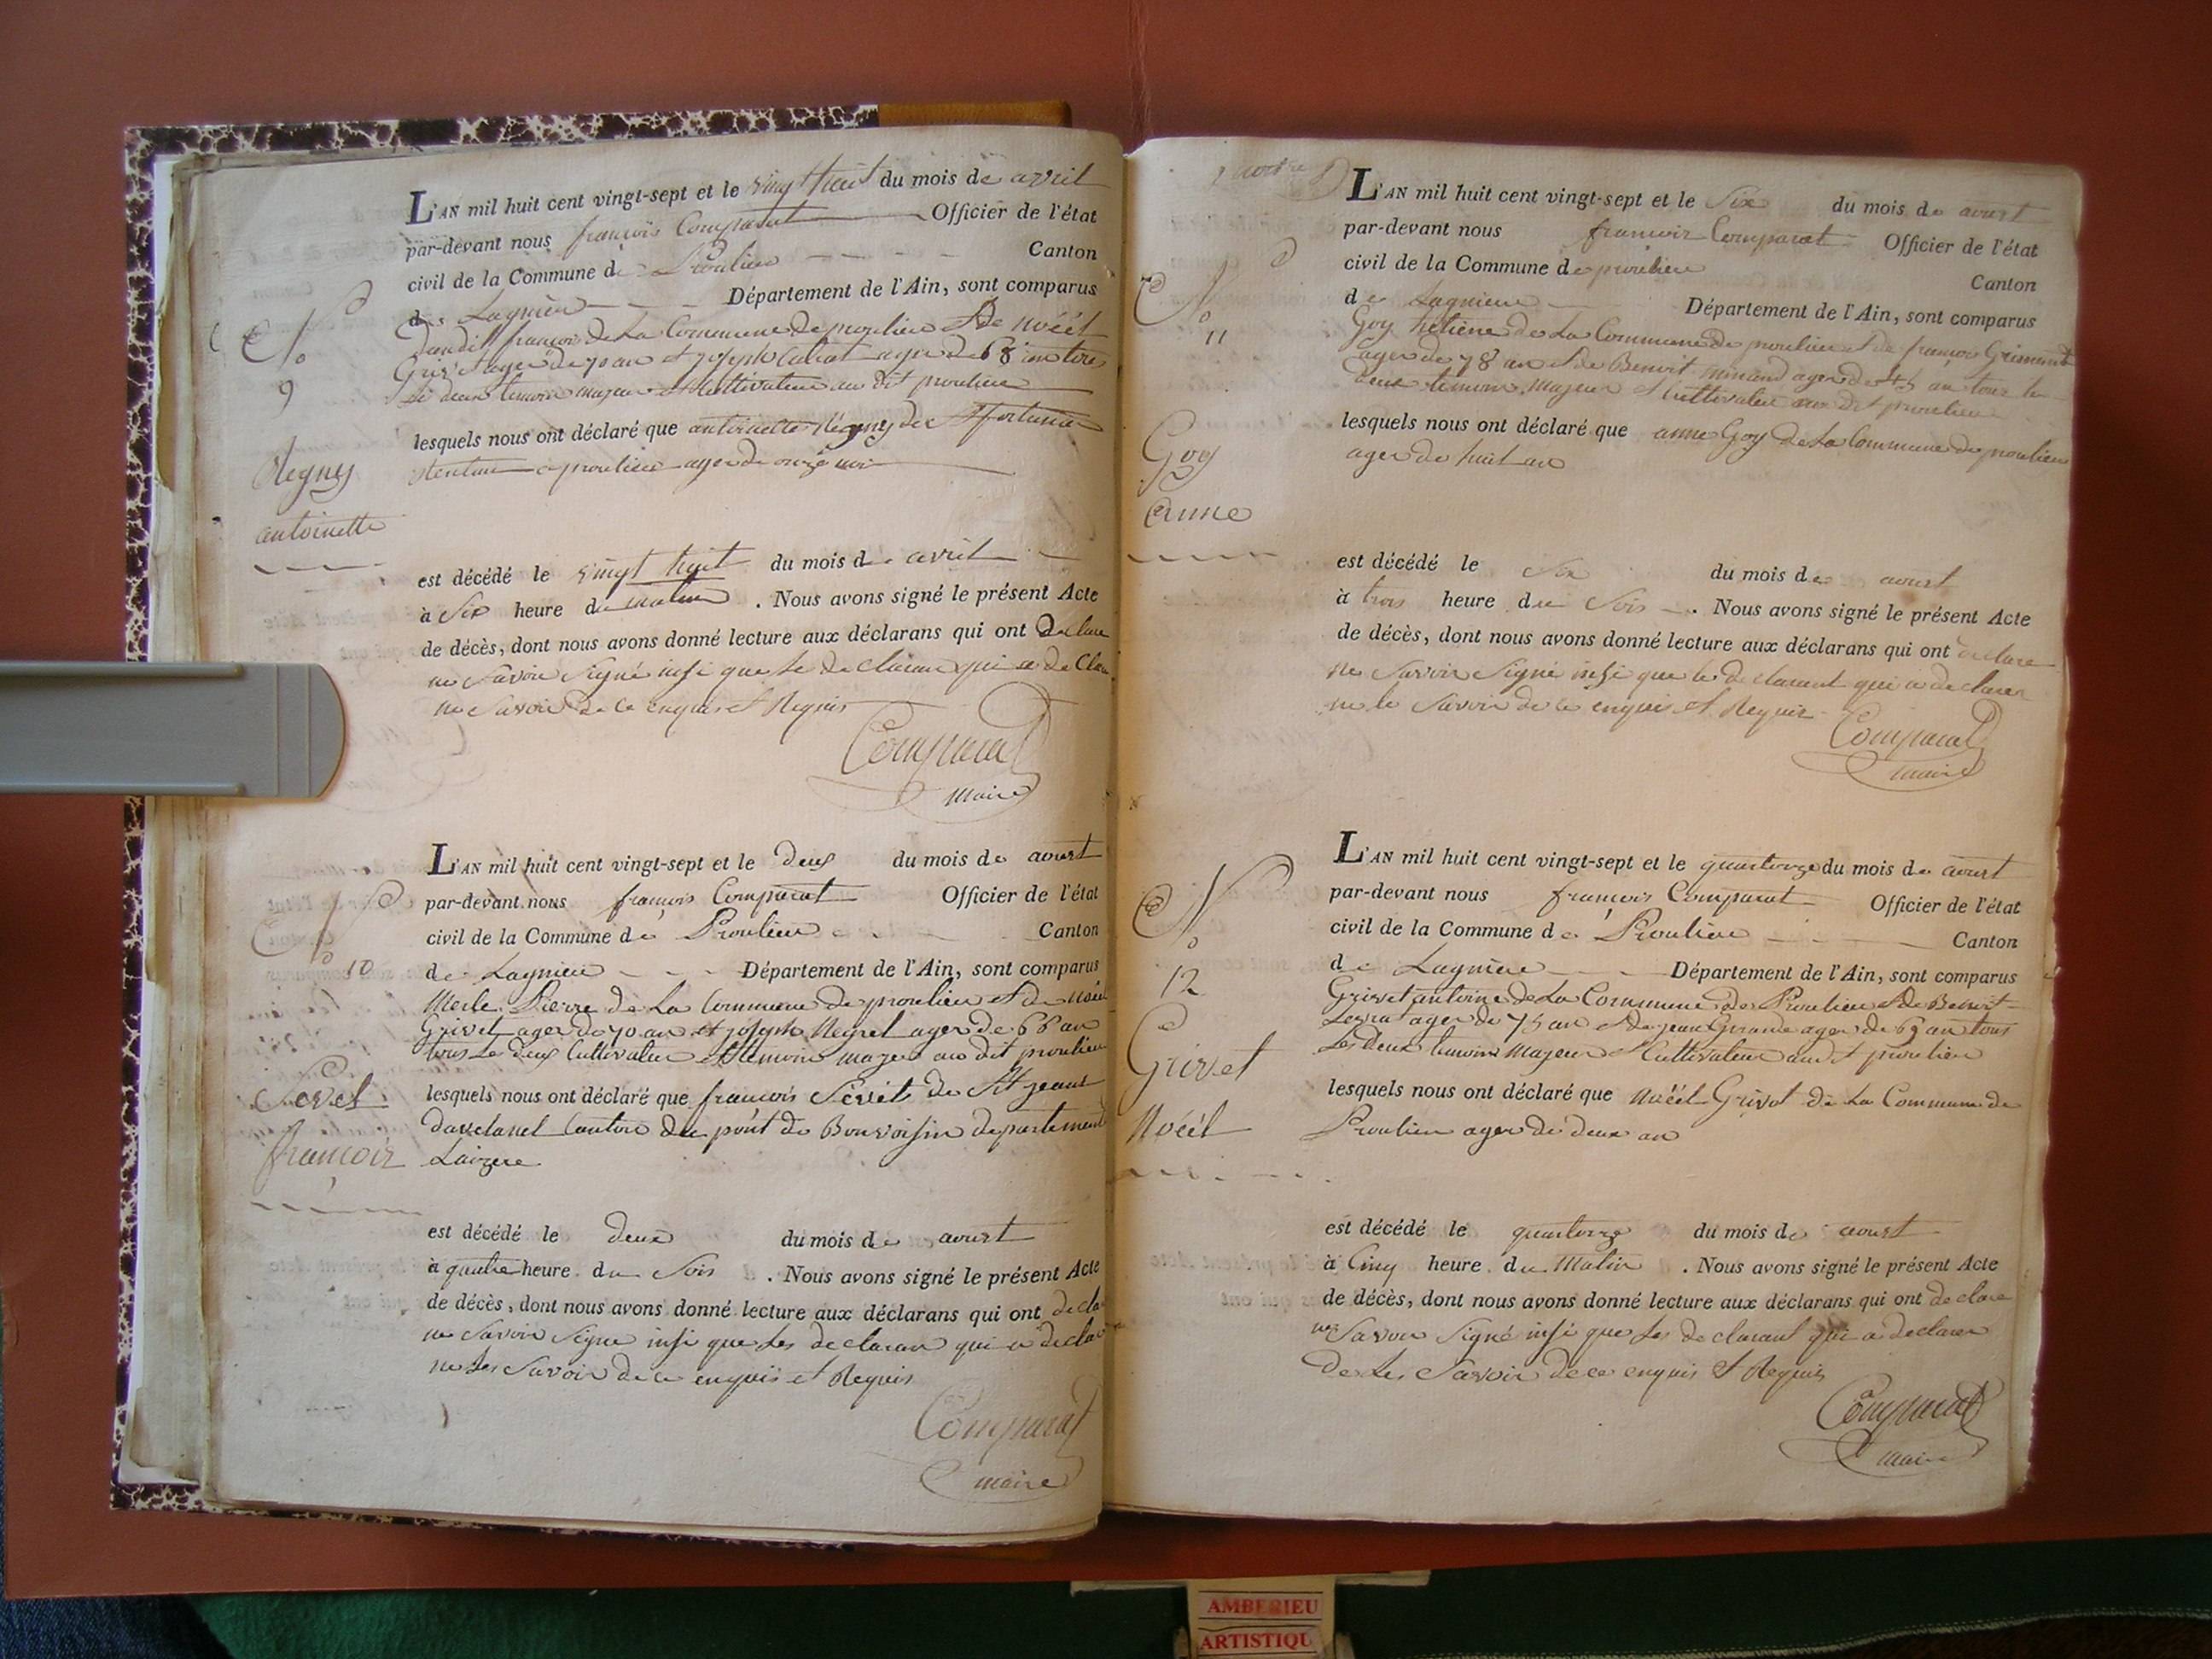 L'AN mil huit cent vingt-sept et le vingt huit du mois de avril
par-devant nous françois Comparat Officier de l'état
civil de la Commune de Proulieu Canton
de Lagnieu Département de l'Ain, sont comparus
françois de La Commune de proulieu et de noéél
Grivet ager de 70 an et joseph ager de 68 an tous
deux temoin majeur et Cultivateur au dit proulieu
N° 9
lesquels nous ont déclaré que antoinette Regny de
a proulieu ager de onze
Regny
antoinette
est décédé le vingt huit du mois de avril
à Six heure du matin . Nous avons signé le présent Acte
de décès, dont nous avons donné lecture aux déclarans qui ont declare
ne Savoir Signé insi que le declaran qui a de Clare
ne Savoir de ce enquis et Requis
Comparat
maire
L'AN mil huit cent vingt-sept et le deux du mois de aoust
par-devant nous françois Comparat Officier de l'état
civil de la Commune de Proulieu Canton
N° 10
de Lagnieu Département de l'Ain, sont comparus
Merle Pierre de La Commune de proulieu et de noéél
Grivet ager de 70 an et joseph Negret ager de 66 an
tous Le deux Cultivateur et temoin majeur au dit proulieu
Sevet
françois
lesquels nous ont déclaré que françois Sevet de St jeant
davelanel Canton du pont de Bonvoisin departement
Laizere
est décédé le deux du mois de aoust
à quatre heure du Soir . Nous avons signé le présent Acte
de décès, dont nous avons donné lecture aux déclarans qui ont decla
ne Savoir Signe insi que Les declaran qui a declar
ne Les Savoir de ce enquis et Requis
Comparat
maire
L'AN mil huit cent vingt-sept et le Six du mois de aoust
par-devant nous françois Comparat Officier de l'état
civil de la Commune de proulieu Canton
de Lagnieu Département de l'Ain, sont comparus
N° 11
Goy de La Commune de proulieu et de françois Grimand
ager de 78 an et de Benoit ager de 45 an tous les
deux temoin Majeur et Cultivateur au dit proulieu
lesquels nous ont déclaré que anne Goy de La Commune de proulieu
ager de huit an
Goy
anne
est décédé le Six du mois de aoust
à trois heure du Soir . Nous avons signé le présent Acte
de décès, dont nous avons donné lecture aux déclarans qui ont declare
ne Savoir Signé insi que le declarant qui a declarer
ne le Savoir de ce enquis et Requis
Comparat
maire
L'AN mil huit cent vingt-sept et le quartorze du mois de aoust
par-devant nous françois Comparat Officier de l'état
civil de la Commune de Proulieu Canton
de Lagnieu Département de l'Ain, sont comparus
N° 12
Grivet antoine de La Commune de Proulieu et de Benoit
ager de 75 an et de jean ager de 69 an tous
Les Deux temoin Majeur et Cultivateur au dit proulieu
Grivet
Noéél
lesquels nous ont déclaré que noéél Grivet de La Commune de
Proulieu ager de deux an
est décédé le quartorze du mois de aoust
à Cinq heure du Matin . Nous avons signé le présent Acte
de décès, dont nous avons donné lecture aux déclarans qui ont declare
ne Savoir Signé insi que Les declarant qui a declarer
de Les Savoir de ce enquis et Requis
Comparat
maire
AMBERIEU
ARTISTIQU